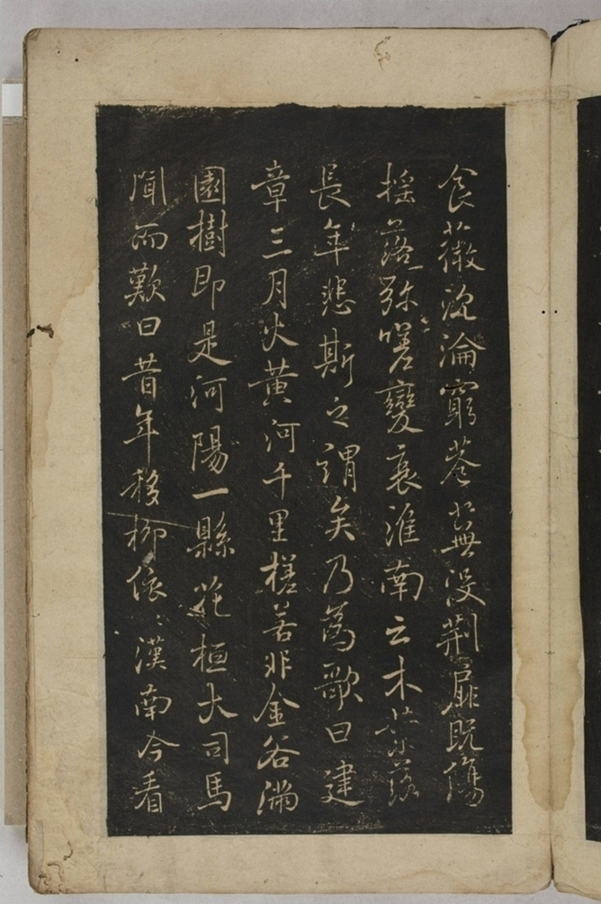 食薇沈淪窮巷蕪沒荊扉既傷
搖落弥嗟變衰淮南云木葉落
長年悲斯之謂矣乃為歌曰建
章三月火黃河千里槎若非金谷滿
園樹即是河陽一縣花桓大司馬
聞而歎曰昔年移柳依〻漢南今看